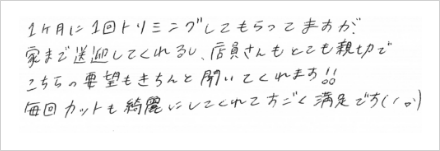 1ヶ月に1回トリミングしてもらってますが、
家まで送迎してくれるし、店員さんもとても親切で
こちらの要望もきちんと聞いてくれます!!
毎回カットも綺麗にしてくれてすごく満足です(^o^)